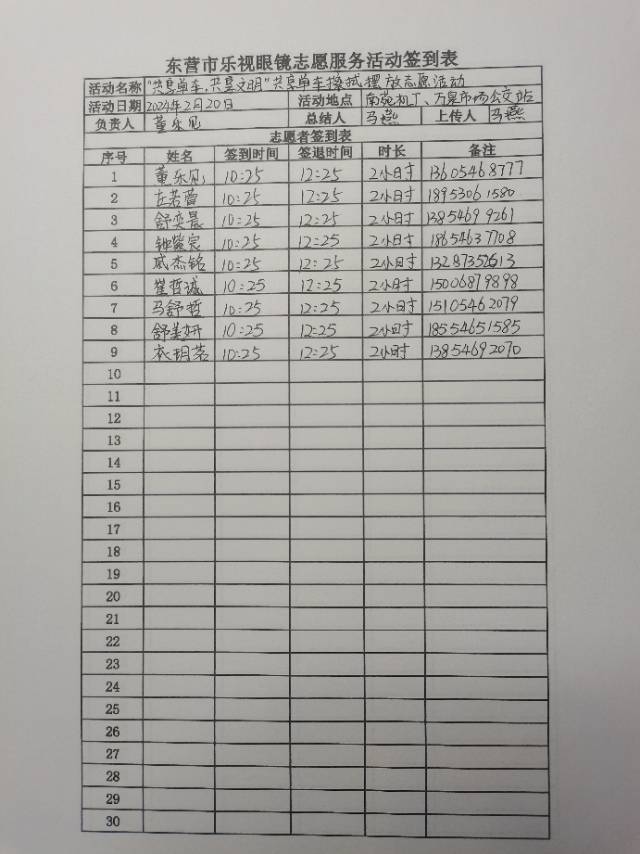 东营市乐视眼镜志愿服务活动签到表
活动名称 "共享单车,共享文明"共享单车擦拭摆放志愿活动
活动日期 2024年2月20日 活动地点 南苑机厂、万泉市场公交站
负责人 董乐见 总结人 马燕 上传人 马燕
志愿者签到表
序号 姓名 签到时间 签退时间 时长 备注
1 董乐见 10:25 12:25 2小时 13605468777
2 左若萱 10:25 12:25 2小时 18953061580
3 舒奕晨 10:25 12:25 2小时 13854699261
4 10:25 12:25 2小时 18654637708
5 戚杰铭 10:25 12:25 2小时 13287352613
6 崔哲诚 10:25 12:25 2小时 15006879898
7 马舒哲 10:25 12:25 2小时 15105462079
8 舒美妍 10:25 12:25 2小时 18554651585
9 衣玥茗 10:25 12:25 2小时 13854692070
10
11
12
13
14
15
16
17
18
19
20
21
22
23
24
25
26
27
28
29
30